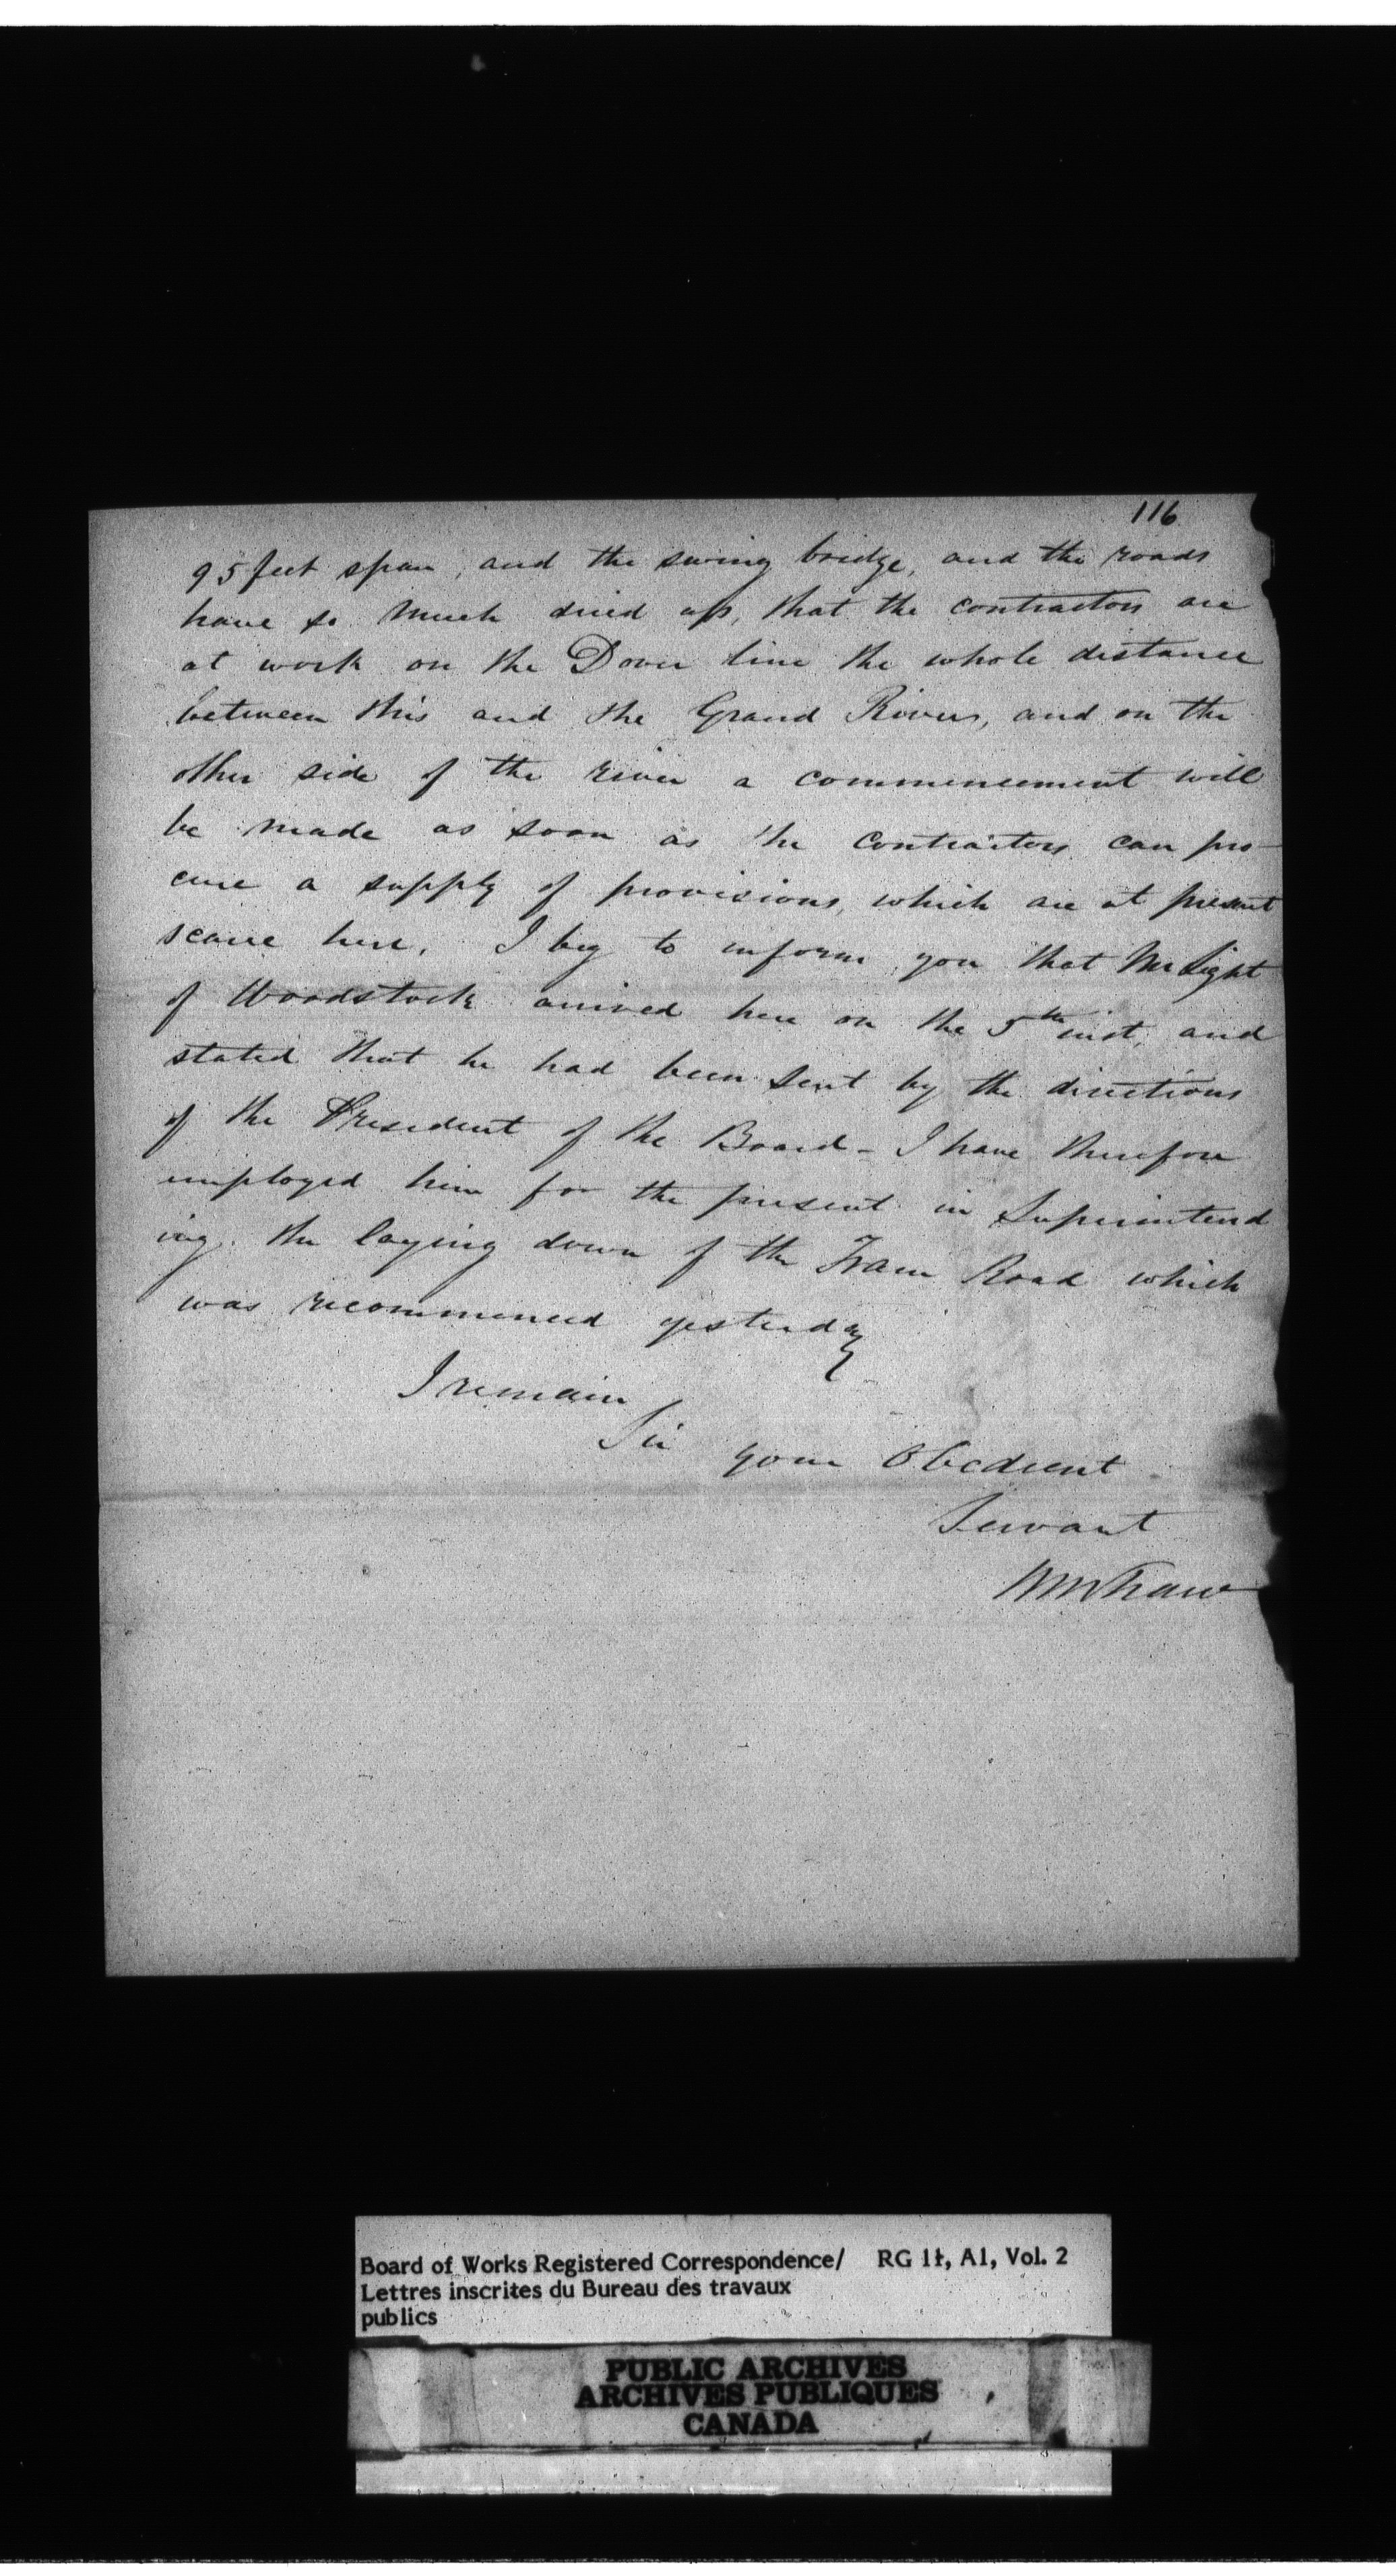 116
95 feet span, and the swing bridge, and the roads
have so much dried up, that the contractors are
at work on the Dover line the whole distance
between this and the Grand River, and on the
other side of the river a commencement will
be made as soon as the contractors can pro-
cure a supply of provisions, which are at present
scarce here. I beg to inform you that Mr Light
of Woodstock arrived here on the 5th inst, and
stated that he had been sent by the directions
of the President of the Board - I have therefore
employed him for the present in Superintend
ing the laying down of the Tram Road which
was recommenced yesterday
I remain
Sir your Obedient
Servant
Wm Shaw
Board of Works Registered Correspondence/ RG 11, A1, Vol. 2
Lettres inscrites du Bureau des travaux
publics
PUBLIC ARCHIVES
ARCHIVES PUBLIQUES
CANADA